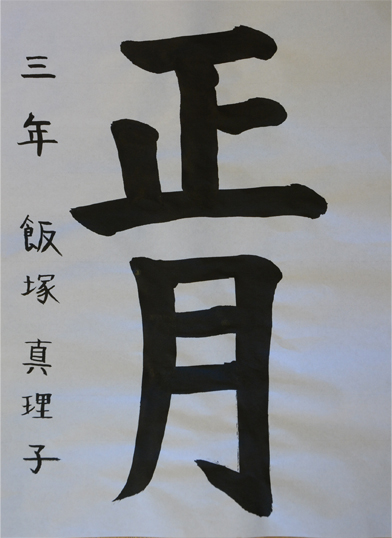 正月
三年 飯塚 真理子